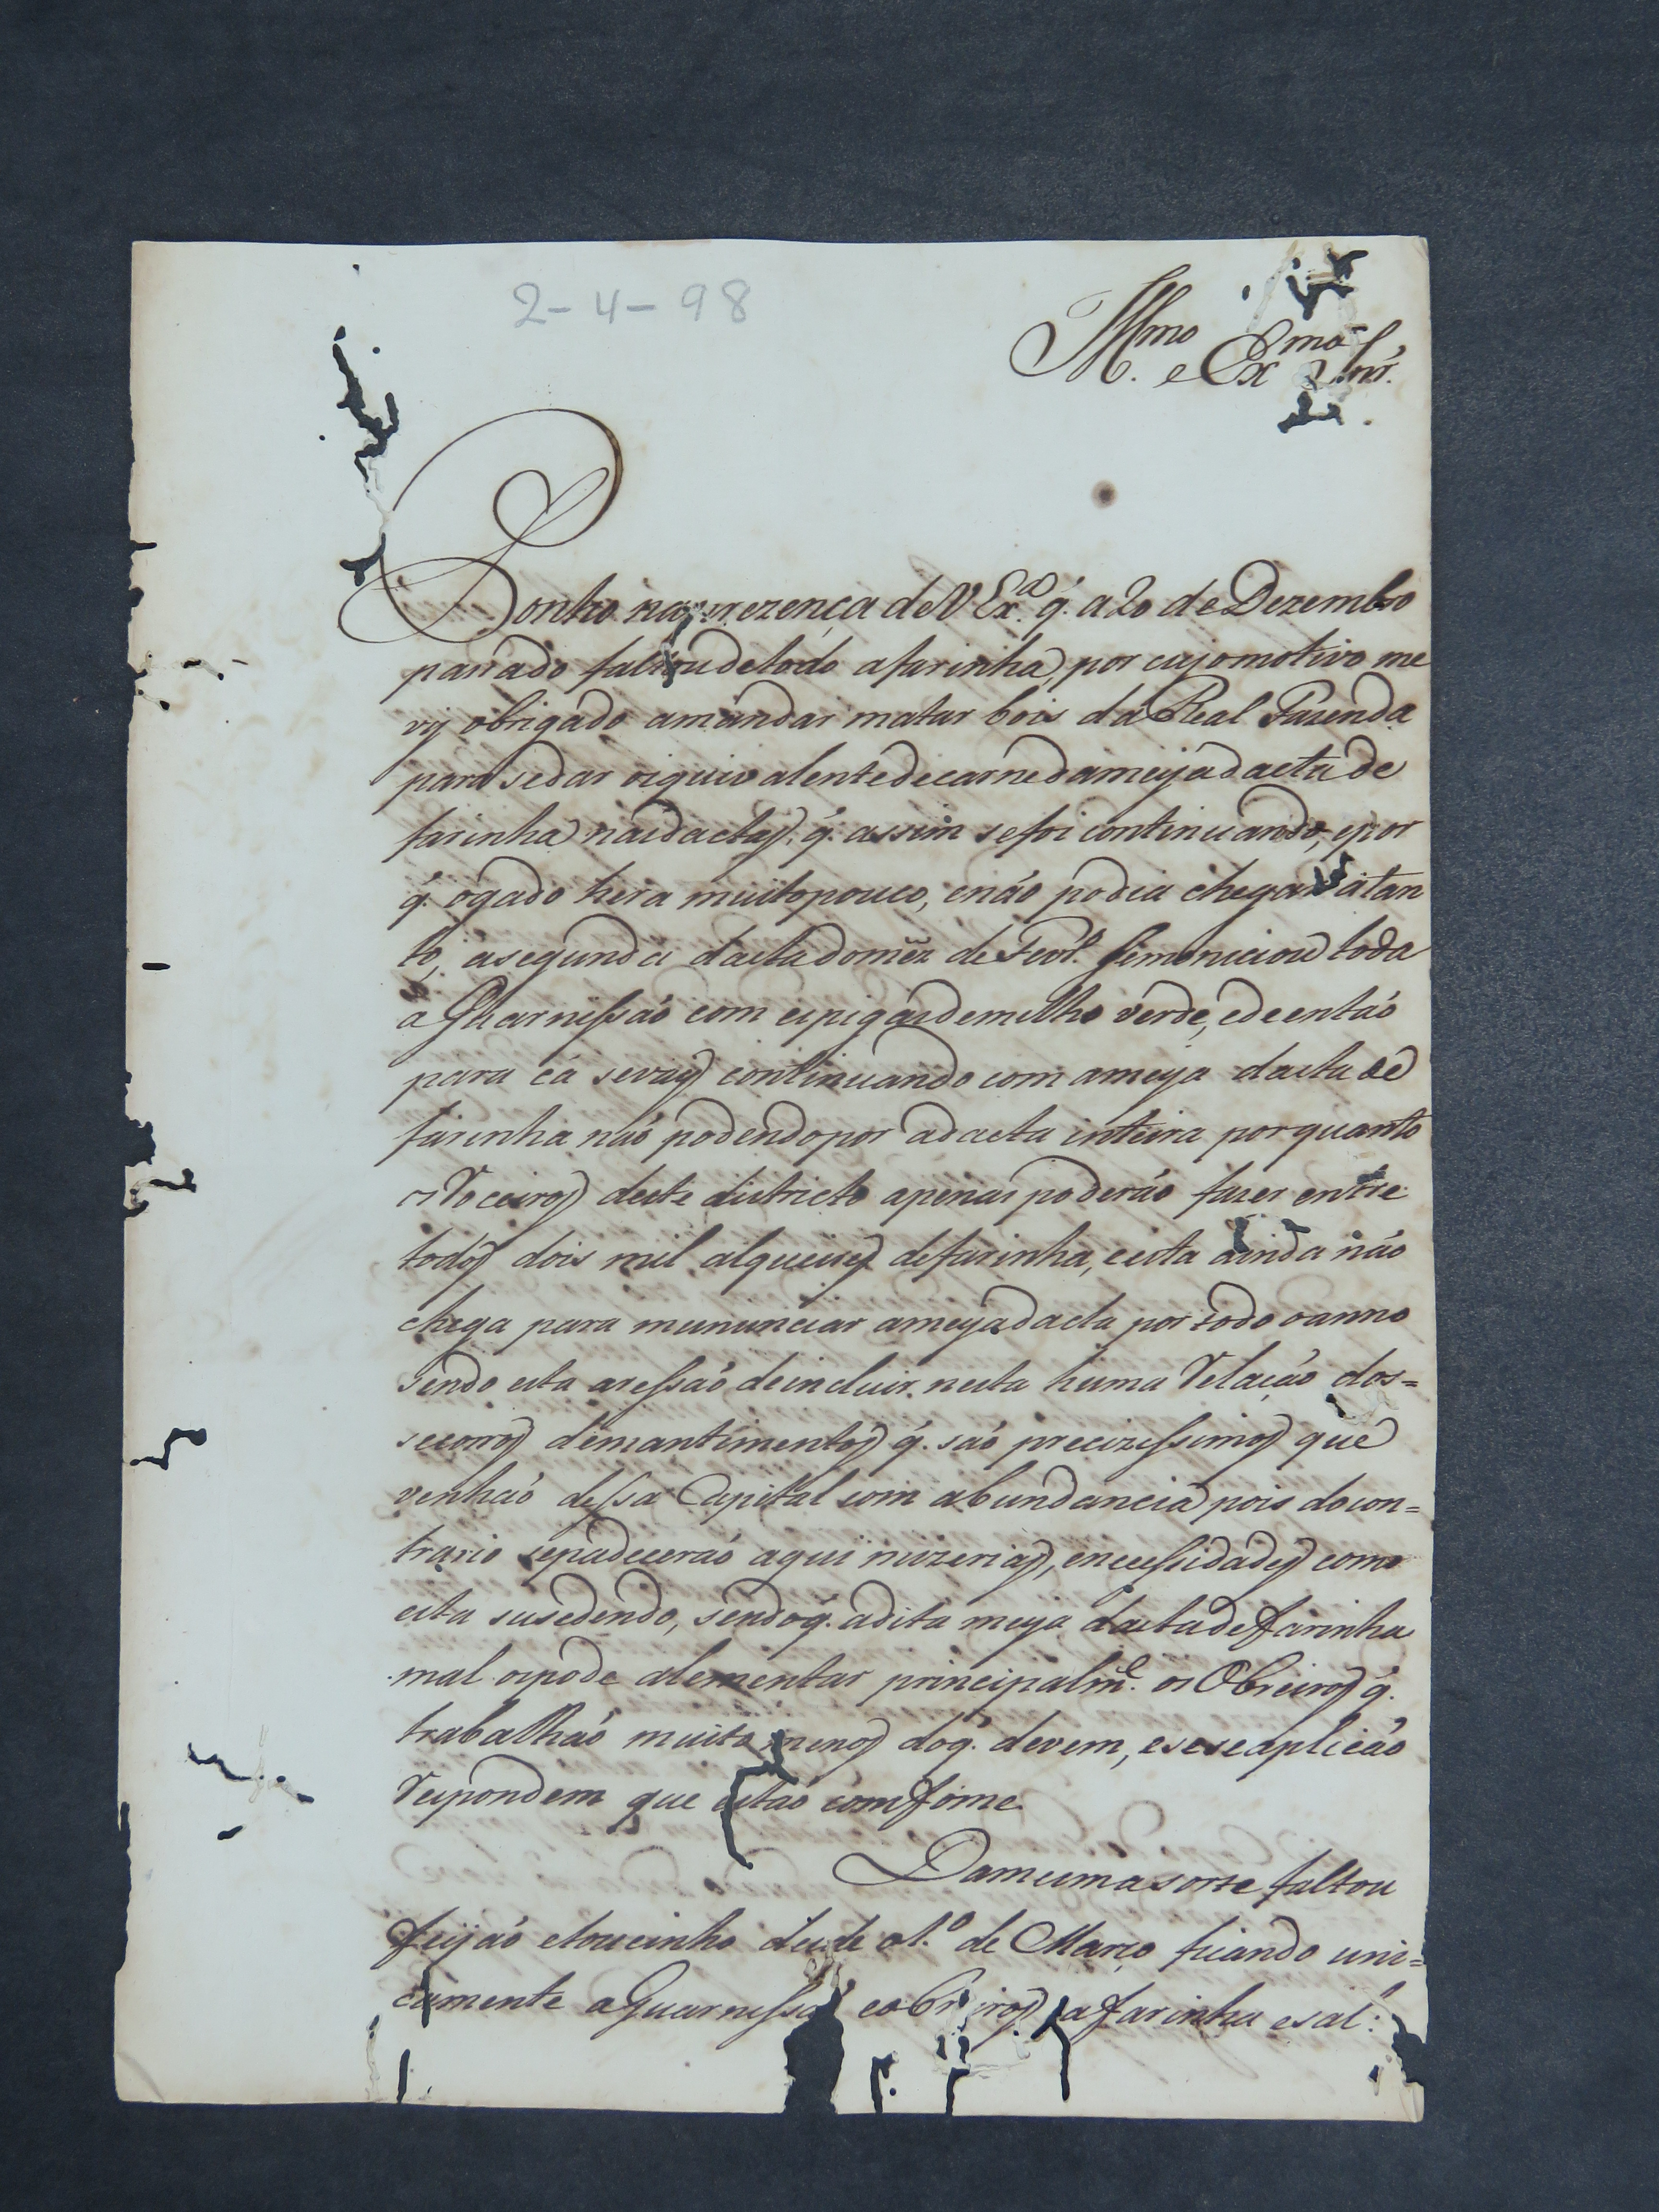 2-4-98
Illmo. e Exmo Snr.
Ponho na prezença de V Exa. q. a 20 de Dezembro
passado faltou detodo afarinha, por cujomotivo me
vy obrigado amandar matar bois da Real Fazenda
para sedar oiquivalentedecarnedameyadacta de
farinha nasdactas, q. assim sefoi continuando, epor
q. ogado hera muitopouco, enão podia chegar atan
to, asegunda dactadomez de Fevr.o semoniciou toda
a Guarnissão com espigasdemilho verde, edeentão
para cá sevay continuando com ameya dacta de
farinha não podendopor adacta inteira porquanto
os Roceiros deste districto apenas poderão fazer entre
todos dois mil alqueires defarinha, eesta ainda não
chega para mununciar ameyadacta por todo oanno
sendo esta aressão deincluir nesta huma Relação dos=
secorros demantimentos q. são precizissimos que
venhão dessa Capital com abundancia pois docon=
trario sepadecerão aqui mizerias, enecessidades como
esta susedendo, sendoq. adita meya dactadefarinha
mal ospode alementar principalm.e os Obreiros q.
trabalhão muito menos doq. devem, eseseaplicão
Respondem que estão comfome.
Damesmasorte faltou
feijão etoucinho desde o1.o de Março ficando uni=
camente aGuarnissão eobreiros afarinha esal: